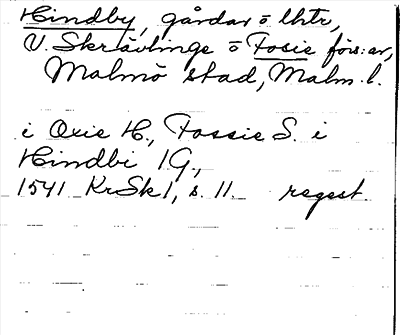 Hindby, gårdar o lhtr,
V. Skrävlinge o Fosie förs:ar,
Malmö stad, Malm. l.
i Oxie H., Fossie S. i
Hindbi 1G.,
1541 KrSk1, s. 11. regest.